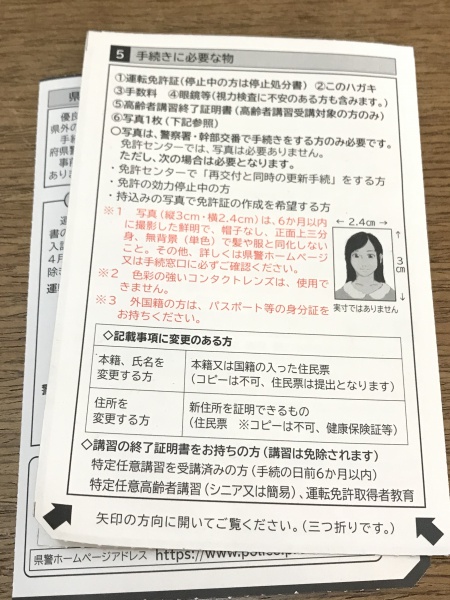 5 手続きに必要な物
①運転免許証(停止中の方は停止処分書) ②このハガキ
③手数料 ④眼鏡等(視力検査に不安のある方も含みます。)
⑤高齢者講習終了証明書(高齢者講習受講対象の方のみ)
⑥写真1枚(下記参照)
○写真は、警察署・幹部交番で手続きをする方のみ必要です。
免許センターでは、写真は必要ありません。
ただし、次の場合は必要となります。
・免許センターで「再交付と同時の更新手続」をする方
・免許の効力停止中の方
・持込みの写真で免許証の作成を希望する方
※1 写真(縦3cm・横2.4cm)は、6か月以内
に撮影した鮮明で、帽子なし、正面上三分
身、無背景(単色)で髪や服と同化しない
こと。その他、詳しくは県警ホームページ
又は手続窓口に必ずご確認ください。
※2 色彩の強いコンタクトレンズは、使用で
きません。
※3 外国籍の方は、パスポート等の身分証を
お持ちください。
←2.4cm→
↑
3
cm
↓
実寸ではありません
◇記載事項に変更のある方
本籍、氏名を
変更する方
本籍又は国籍の入った住民票
(コピーは不可、住民票は提出となります)
住所を
変更する方
新住所を証明できるもの
(住民票 ※コピーは不可、健康保険証等)
◇講習の終了証明書をお持ちの方(講習は免除されます)
特定任意講習を受講済みの方(手続の日前6か月以内)
特定任意高齢者講習(シニア又は簡易)、運転免許取得者教育
矢印の方向に開いてご覧ください。(三つ折りです。)
県警ホームページアドレス https://www.police.p